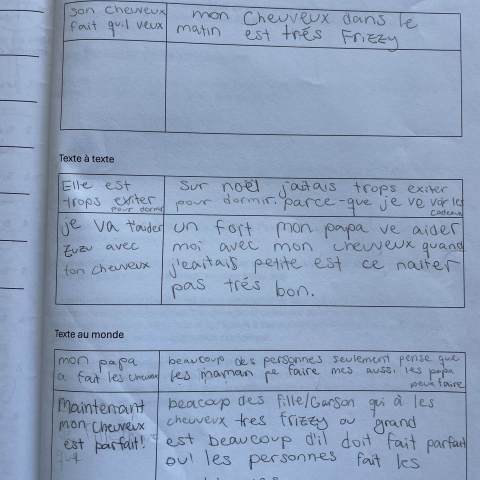 son cheuveux
fait quil veux
mon cheuveux dans le
matin est trés Frizzy
Texte à texte
Elle est
trops exiter
pour dormir
sur noël j'aitais trops exiter
pour dormir. parce-que je ve voir les
cadeaux
je va t'aider
zuzu avec
ton cheuveux
un fort mon papa ve aider
moi avec mon cheuveux quand
j'eaitais petite est ce naiter
pas trés bon.
Texte au monde
mon papa
a fait les cheveux
beaucoup des personnes seulement pense que
les maman pe faire mes aussi les papa
peux faire
Maintenant
mon cheuveux
est parfait!
beacoup des fille/Garson qui à les
cheuveux tres frizzy ou grand
est beaucoup d'il doit fait parfait
ou! les personnes fait les